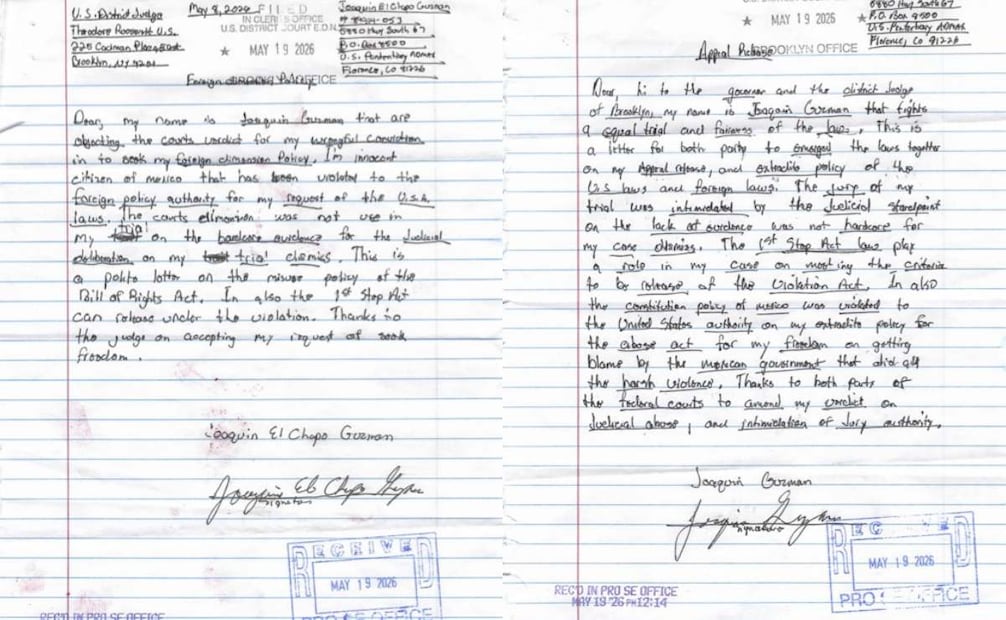 U.S. District Judge
Theodore Roosevelt U.S.
225 Cadman Plaza East
Brooklyn, NY
May 8, 2026
FILED
IN CLERKS OFFICE
U.S. DISTRICT COURT E.D.N.
★ MAY 19 2026
OFFICE
Joaquin El Chapo Guzman
5880 Hwy South 67
P.O. Box 8500
U.S. Penitentiary ADMAX
Florence, Co 81226
Foreign Policy
Dear, my name is Joaquin Guzman that are
objecting the courts verdict for my wrongful conviction
in to seek my foreign dimension Policy. I'm innocent
citizen of mexico that has been violated to the
foreign policy authority for my request of the U.S.A.
laws. The courts was not use in
my trial on the hardcore evidence for the Judicial
deliberation on my trial dismiss. This is
a letter on the misuse policy of the
Bill of Rights Act. In also the 1st Stop Act
can release under the violation. Thanks to
the judge on accepting my request of seek
freedom.
Joaquin El Chapo Guzman
Joaquin El Chapo Guzman
signature
RECEIVED
MAY 19 2026
PRO SE OFFICE
REC'D IN PRO SE OFFICE
U.S. DISTRICT COURT E.D.N.Y.
★ MAY 19 2026 ★
BROOKLYN OFFICE
5880 Hwy South 67
P.O. Box 8500
U.S. Penitentiary ADMAX
Florence, Co 81226
Appeal Release
Dear, hi to the governor and the district Judge
of Brooklyn, my name is Joaquin Guzman that fights
a equal trial and fairness of the laws. This is
a letter for both party to the laws together
on my Appeal release, and extradite policy of the
U.S laws and foreign laws. The jury of my
trial was intimidated by the Judicial
on the lack of evidence was not hardcore for
my case dismiss. The 1st Stop Act law play
a role in my case on meeting the criteria
to be release of the Violation Act. In also
the constitution policy of mexico was violated to
the United States authority on my extradite policy for
the abuse act for my freedom on getting
blame by the mexican government that did all
the harsh violence. Thanks to both parts of
the federal courts to amend my verdict on
Judicial abuse, and intimidation of Jury authority.
Joaquin Guzman
Joaquin Guzman
signature
RECEIVED
MAY 19 2026
PRO SE OFFICE
REC'D IN PRO SE OFFICE
MAY 19 '26 PM 12:14